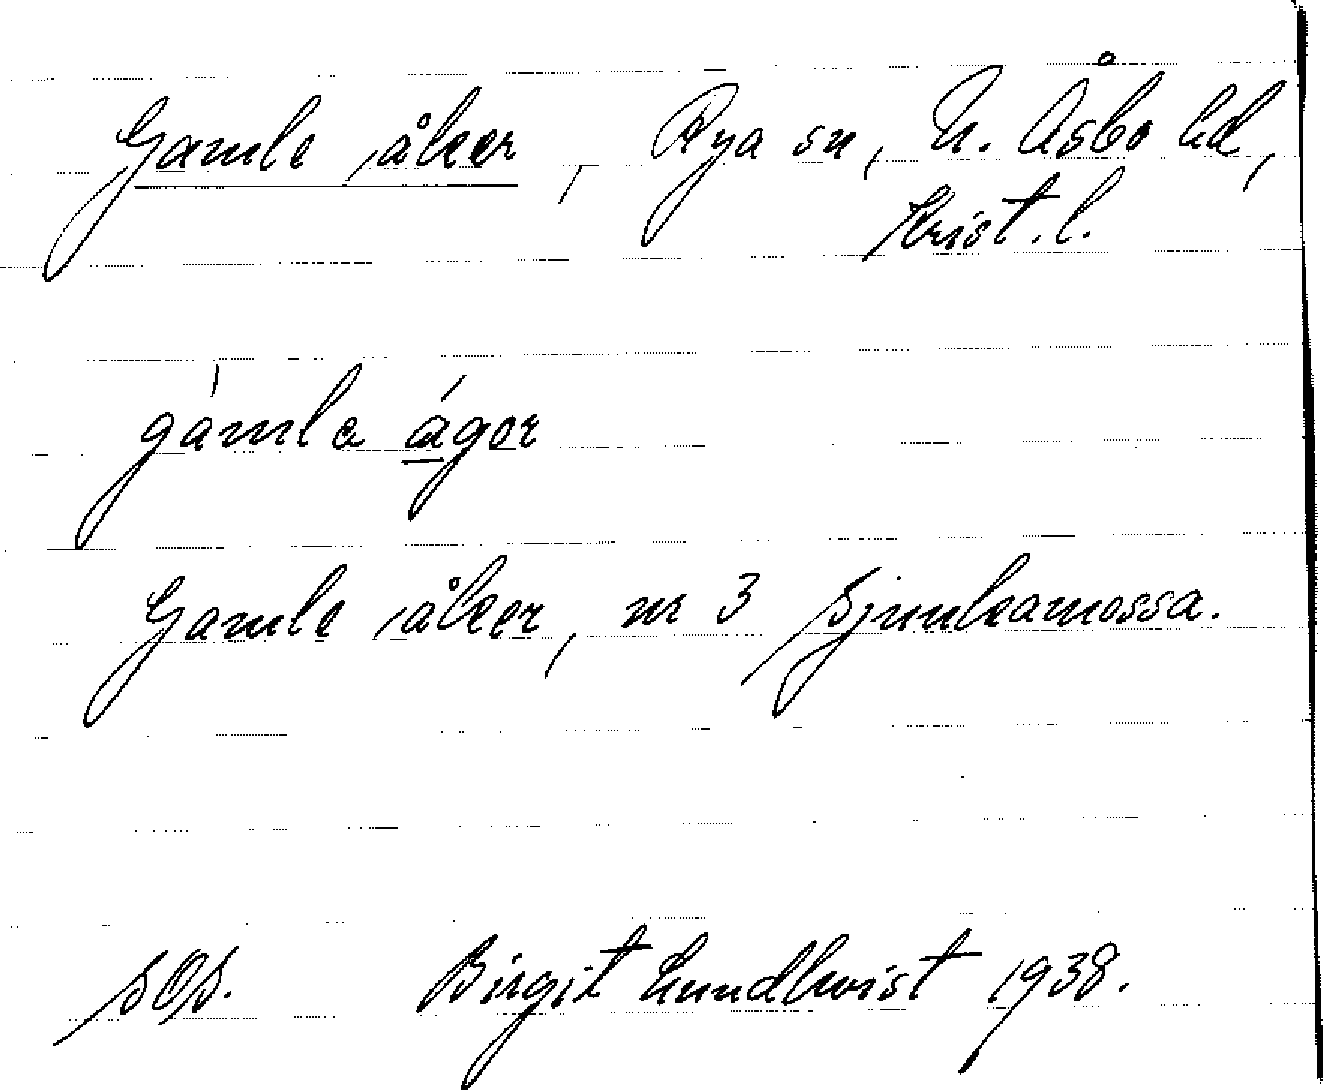 Gamle åker, Rya sn, N. Åsbo hd,
Krist. l.
gámla ágər
Gamle åker, nr 3 Sjunkamossa.
sOs. Birgit Lundkvist 1938.